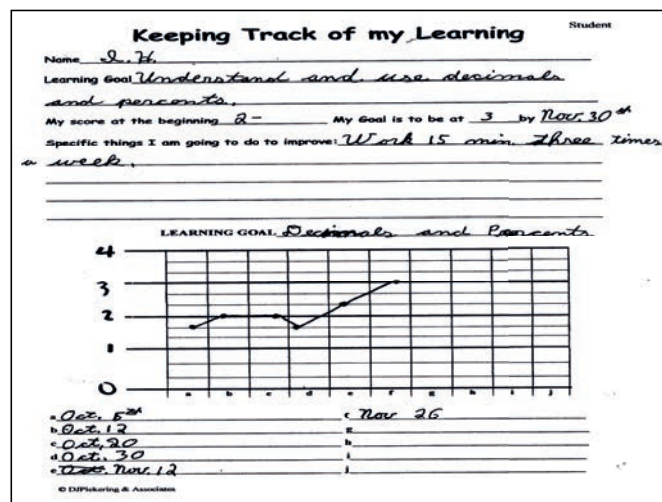 Student
Keeping Track of my Learning
Name I. H.
Learning Goal Understand and use decimals
and percents.
My score at the beginning 2- My Goal is to be at 3 by Nov. 30th
Specific things I am going to do to improve: Work 15 min. three times
a week.
LEARNING GOAL Decimals and Percents
4
3
2
1
0
a b c d e f g h i j
a Oct. 5th f Nov 26
b Oct. 12 g
c Oct, 20 h
d Oct. 30 i
e Oct. Nov. 12 j
© DJPickering & Associates